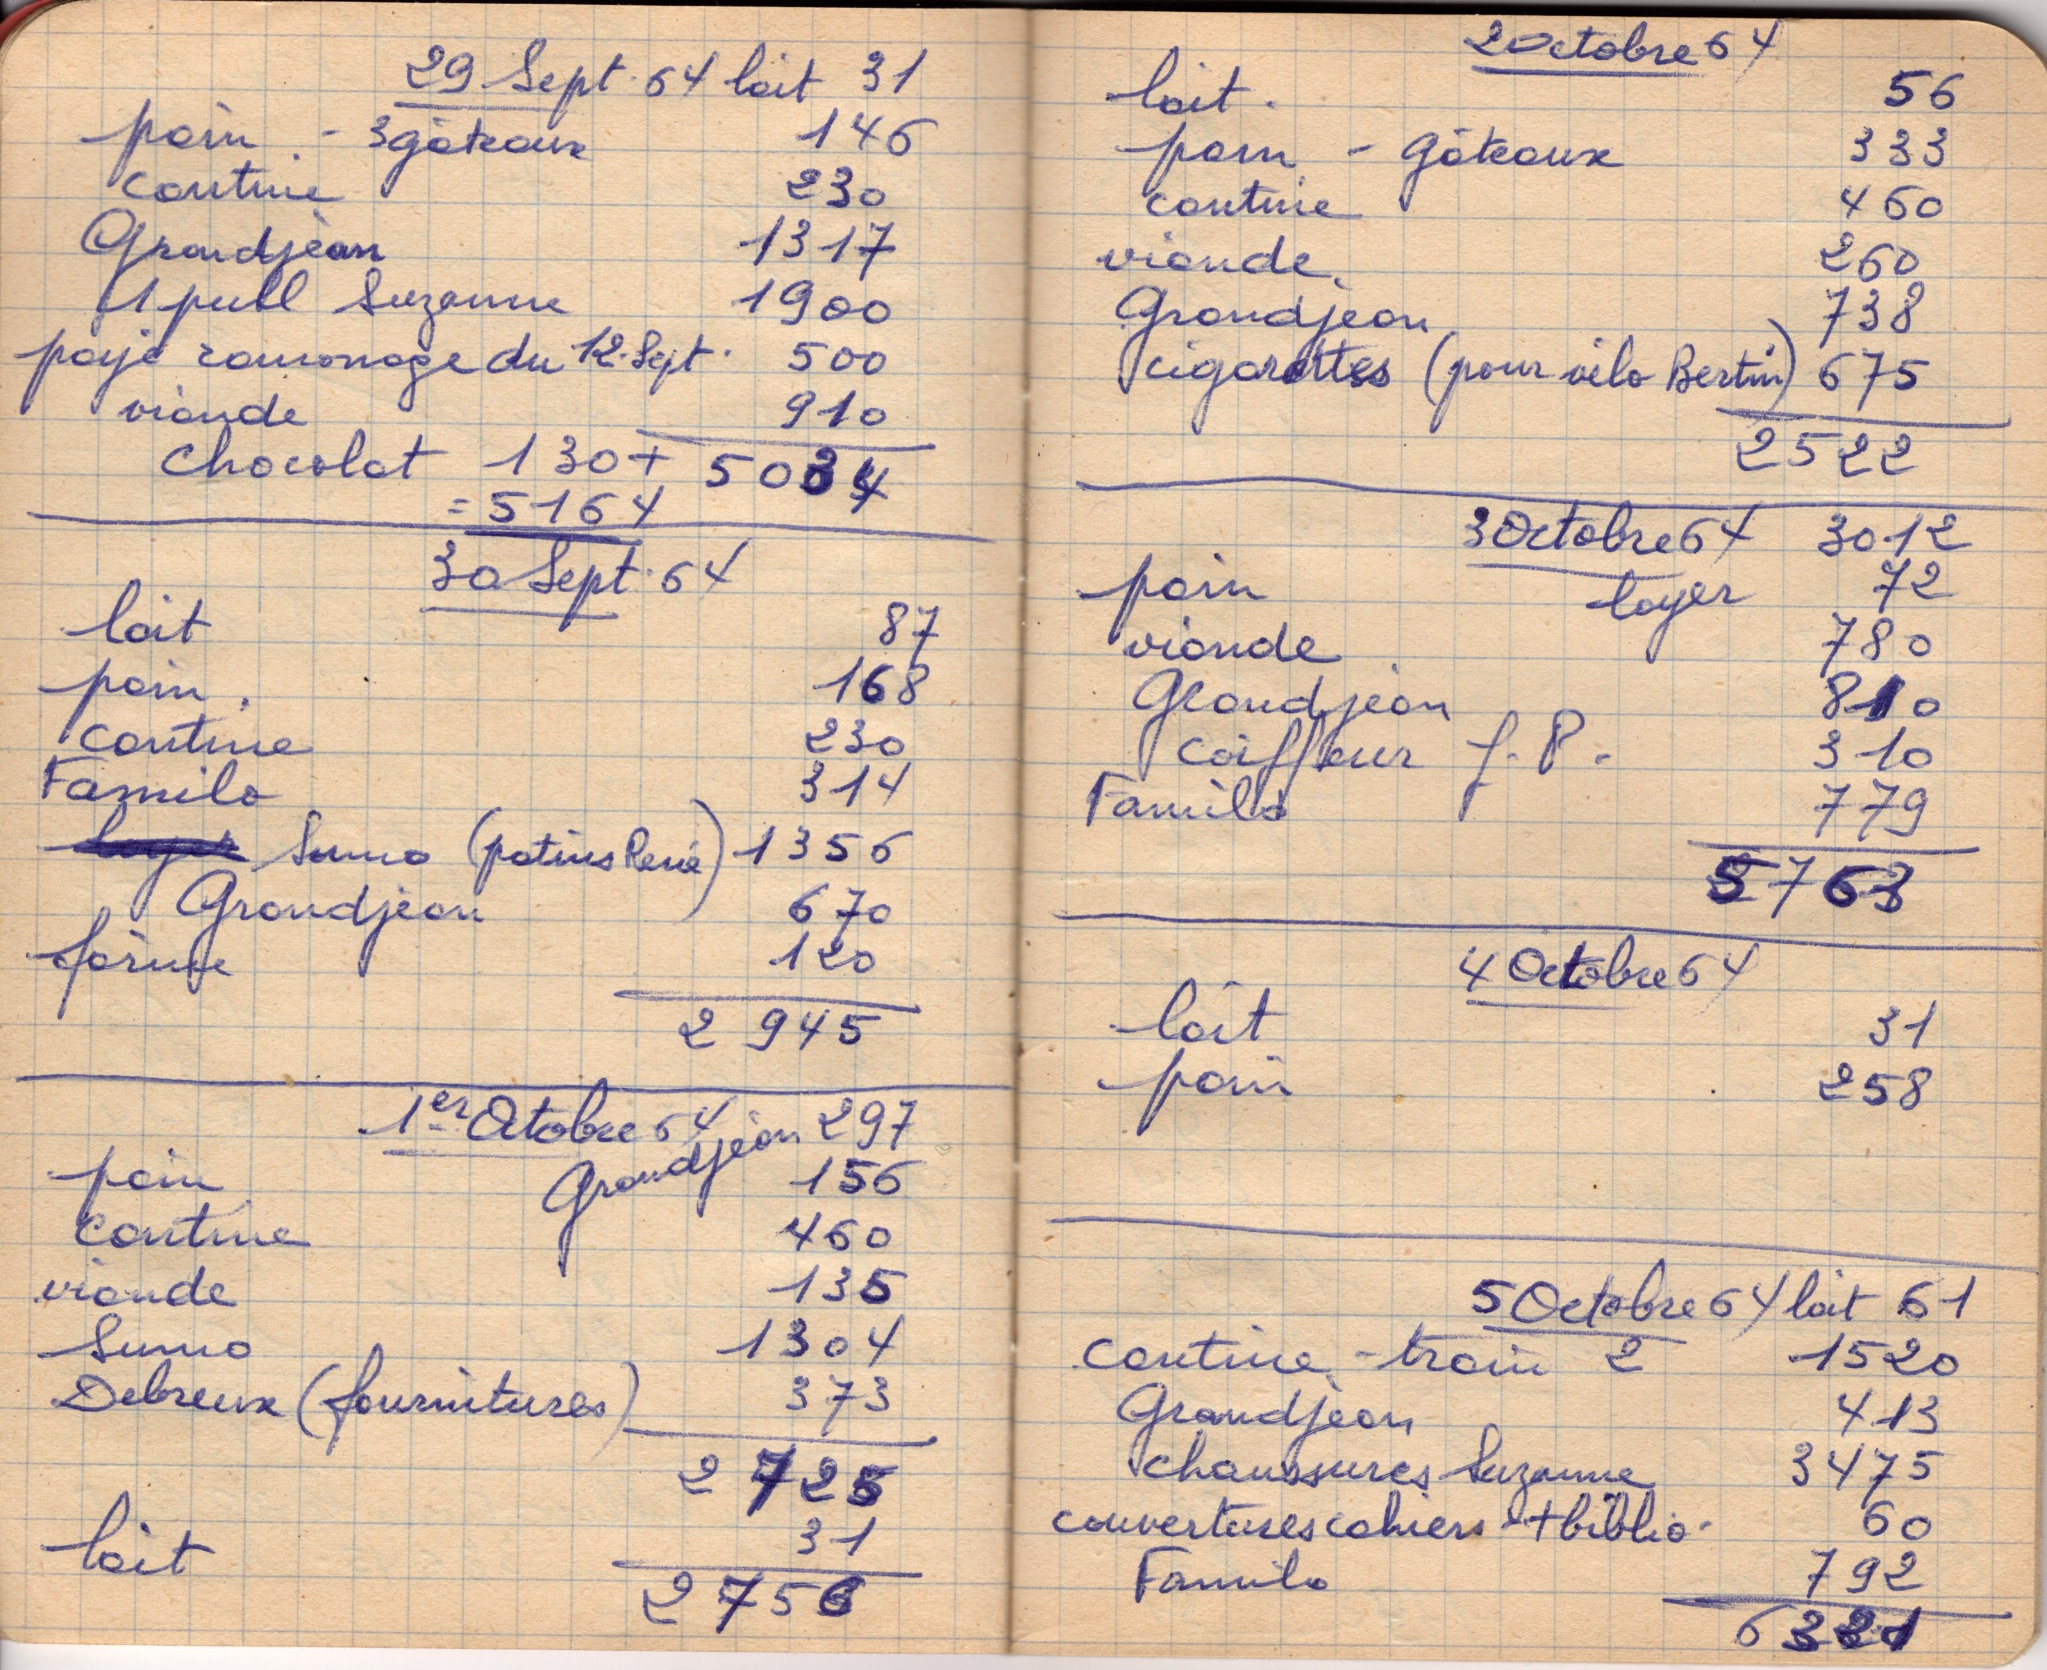 29 Sept. 64 lait 31
pain - 3 gâteaux 146
cantine 230
Grandjean 1317
1 pull Suzanne 1900
payé ramonage du 12 Sept. 500
viande 910
chocolat 130 + 5034
= 5164
30 Sept. 64
lait 87
pain. 168
cantine 230
Familo 314
Suma (patins René) 1356
Grandjean 670
farine 120
2945
1er Octobre 64 Grandjean 297
pain 156
cantine 460
viande 135
Suma 1304
Debreux (fournitures) 373
2725
lait 31
2756
2 octobre 64
lait. 56
pain - gâteaux 333
cantine 460
viande 260
Grandjean 738
cigarettes (pour vélo Bertin) 675
2522
3 Octobre 64 loyer 3012
pain 72
viande 780
Grandjean 810
coiffeur J. P. 310
Familo 779
5763
4 Octobre 64
lait 31
pain 258
5 Octobre 64 lait 61
cantine - train 2 1520
Grandjean 413
chaussures Suzanne 3475
couvertures cahiers + biblio. 60
Familo 792
6321